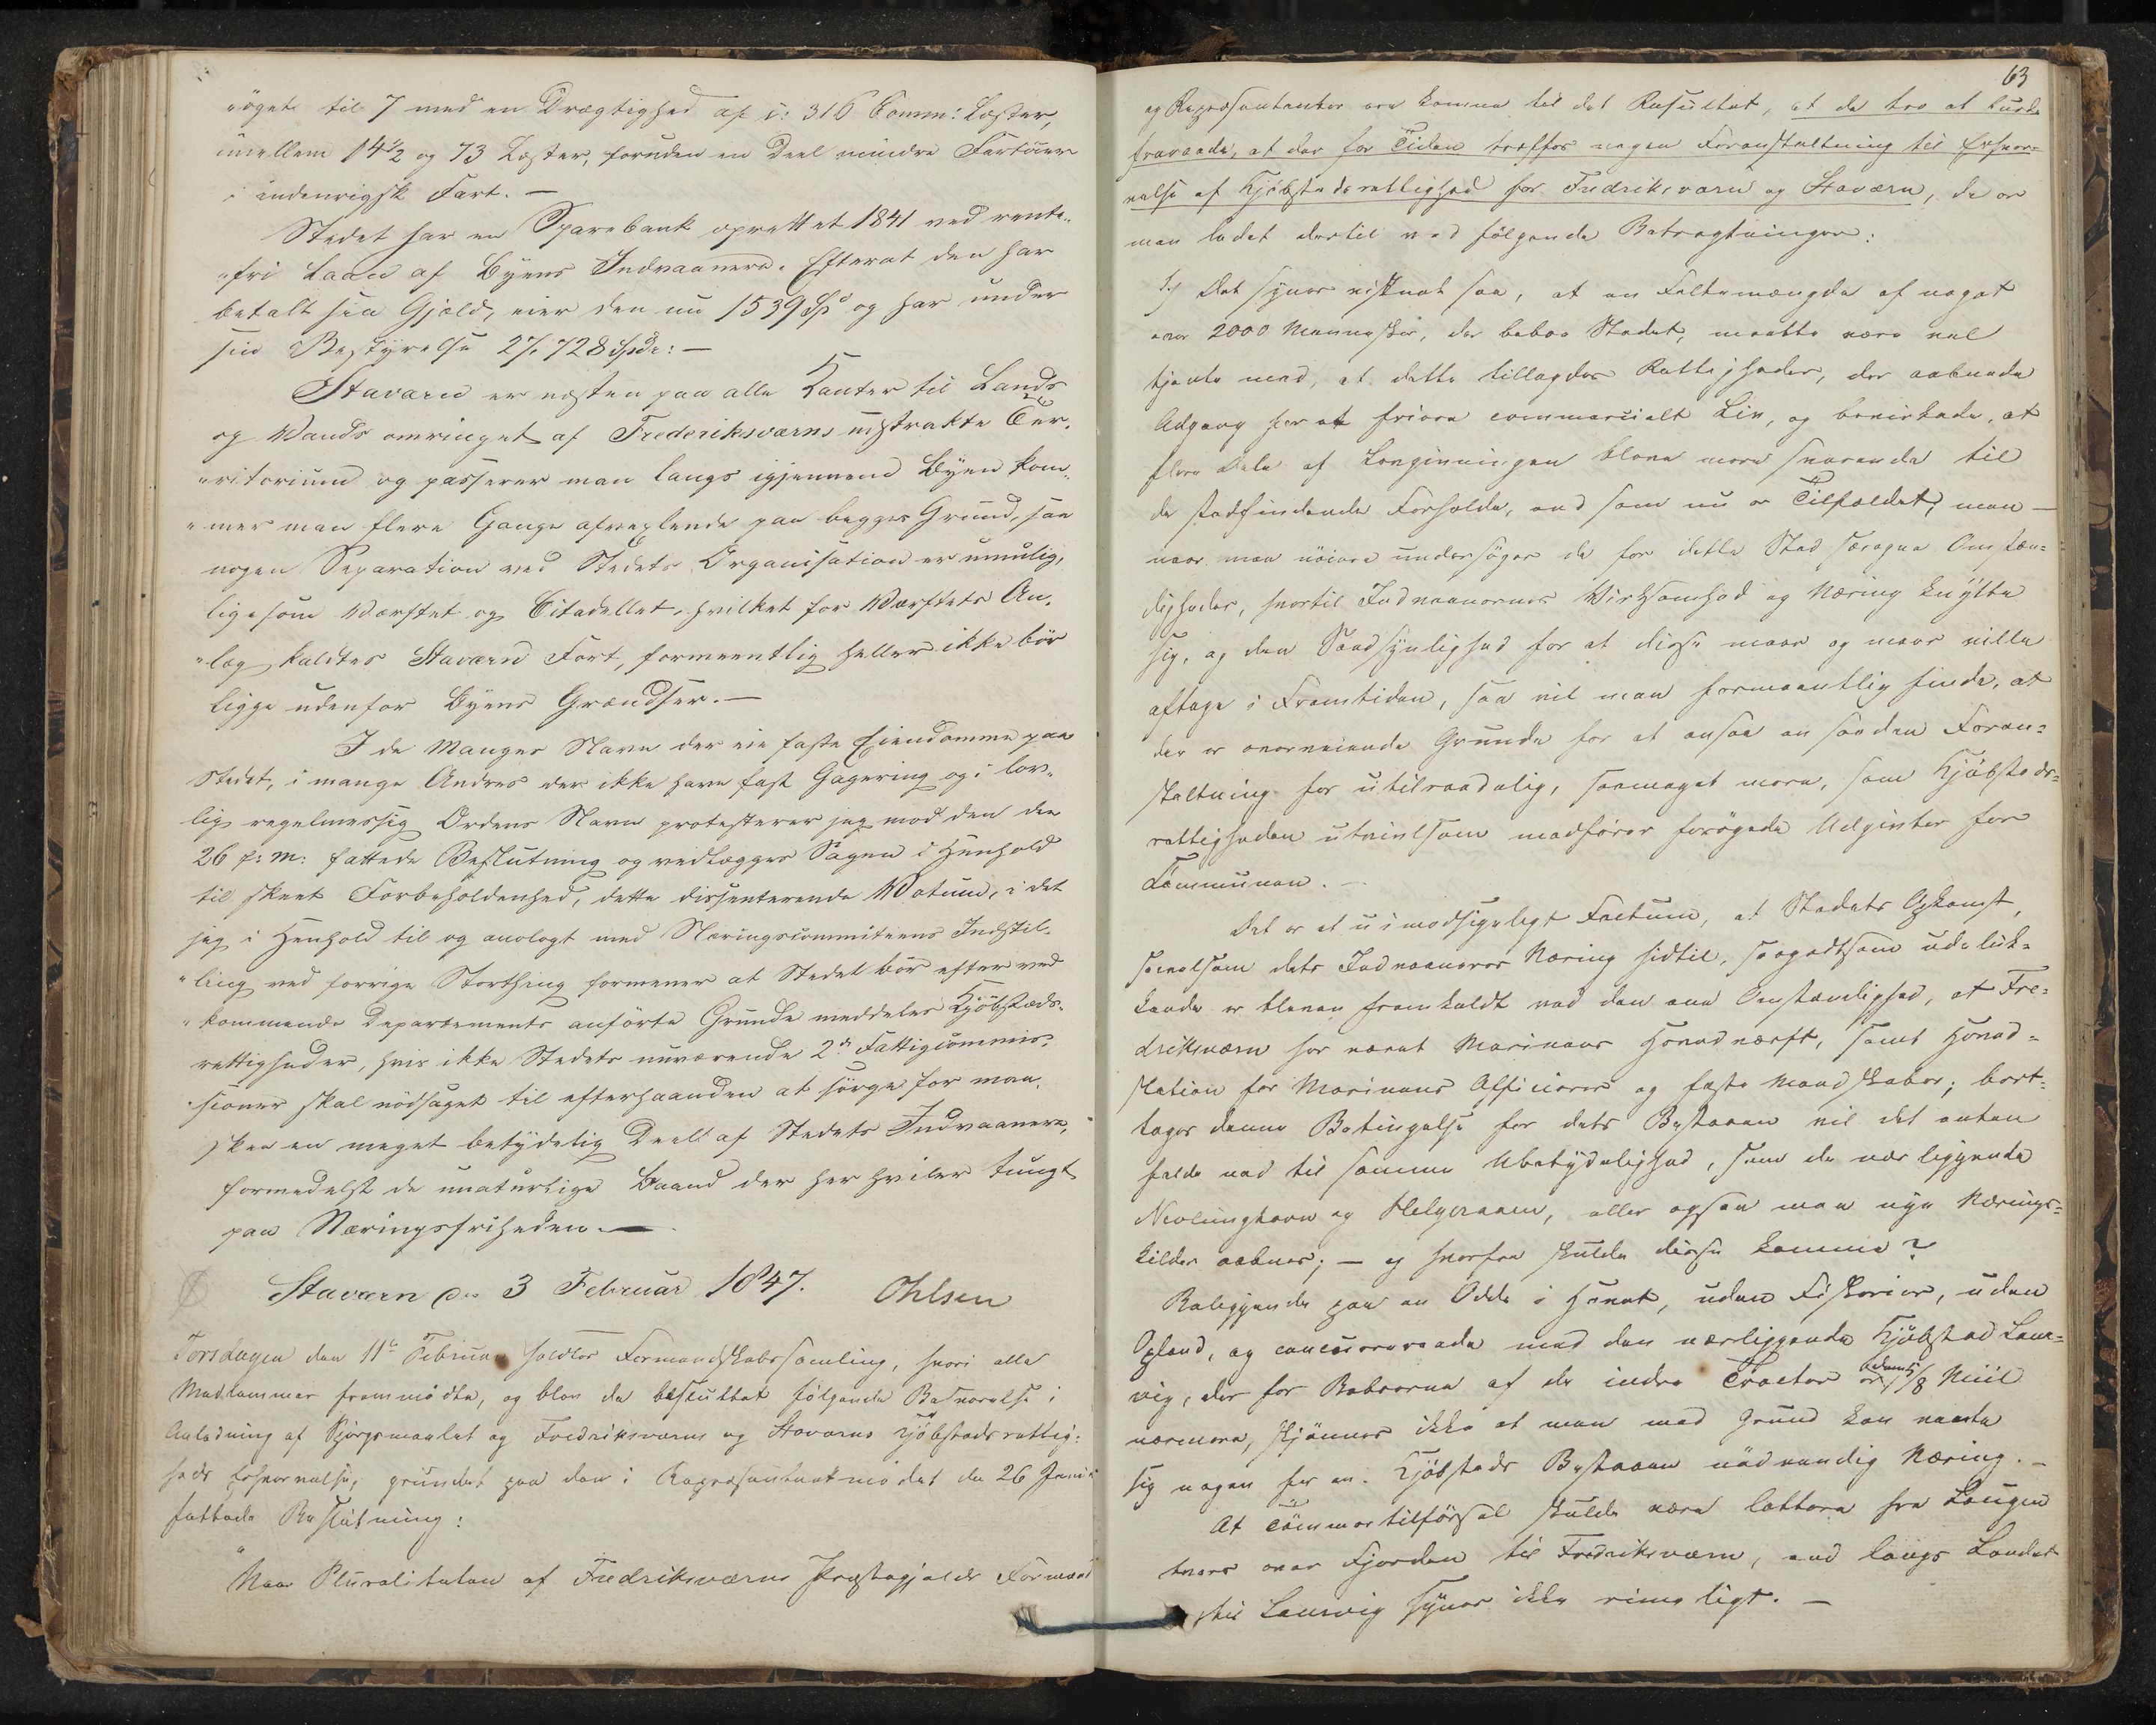 øget til 7 med en Drægtighed af c: 316 Comm: Læster,
imellem 14½ og 73 Læster, foruden en Deel mindre Fartøier
i indenrigsk Fart. —
Stedet har en Sparebank oprettet 1841 ved rente-
"fri Laan af Byens Indvaanere. Efterat den har
betalt sin Gjæld, eier den nu 1539 Spd og har under
sin Bestyrelse 27,728 Spdr: —
Staværn er næsten paa alle Kanter til Lands
og Vands omringet af Frederiksværns udstrakte Ter-
"ritorium og passerer man langs igjennem Byen kom-
"mer man flere Gange afvexlende paa begges Grund, saa
nogen Separation ved Stedets Organisation er umulig,
ligesom Værftet og Citadellet, hvilket før Værftets An-
"læg kaldtes Staværn Fort, formeentlig heller ikke bør
ligge udenfor Byens Grændser. —
I de Manges Navn der eie faste Eiendomme paa
Stedet, i mange Andres der ikke have fast Gagering og i lov-
lig regelmessig Ordens Navn protesterer jeg mod den den
26 f: M: fattede Beslutning og vedlægger Sagen i Henhold
til skeet Forbeholdenhed, dette dissenterende Votum, i det
jeg i Henhold til og analogt med Næringscommiteens Indstil-
"ling ved forrige Storthing formener at Stedet bør efter ved-
"kommende Departements anførte Grunde meddeles Kjøbstæds-
rettigheder, hvis ikke Stedets nuværende 2de Fattigcommis-
sioner skal nødsaget til efterhaanden at sørge for man-
skee en meget betydelig Deel af Stedets Indvaanere,
formedelst de unaturlige Baand der her hviler tungt
paa Næringsfriheden. —
Staværn den 3 Februar 1847. Ohlsen
Torsdagen den 11te Februar holdtes Formandskabssamling, hvori alle
Medlemmer fremmødte, og blev da besluttet følgende Besvarelse i
Anledning af Spørgsmaalet og Fredriksværns og Staværns Kjøbstadsrettig-
heds Erhvervelse, grundet paa den i Repræsentantmødet den 26 Januar
fattede Beslutning:
"Naar Pluraliteten af Fredriksværns Præstegjelds Formænd
63
og Repræsentanter ere komne til det Resultat, at de tro at burde
fraraade, at der for Tiden træffes nogen Foranstaltning til Erhver-
velse af Kjøbstadsrettighed for Fredriksværn og Staværn, da er
man ledet dertil ved følgende Betragtninger:
1.) Det synes vistnok saa, at en Folkemængde af noget
over 2000 Mennesker, der beboe Stedet, maatte være vel
tjente med, at dette tillagdes Rettigheder, der aabnede
Adgang for et friere commercielt Liv, og bevirkede, at
flere Dele af Lovgivningen bleve mere svarende til
de stedfindende Forholde, end som nu er Tilfældet; men —
naar man nøiere undersøger de for dette Sted særegne Omstæn-
digheder, hvortil Indvaanernes Virksomhed og Næring knytte
sig, og den Sandsynlighed for at disse meer og meer ville
aftage i Fremtiden, saa vil man formeentlig finde, at
der er overveiende Grunde for at ansee en saadan Foran-
staltning for utilraadelig, saameget mere, som Kjøbstads-
rettigheden utvivlsom medfører forøgede Udgivter for
Communen. —
Det er et uimodsigeligt Factum, at Stedets Opkomst,
saavelsom dets Indvaaneres Næring hidtil, saagodtsom udeluk-
kende er bleven fremkaldt ved den ene Omstændighed, at Fre-
driksværn har været Marinens Hovedværft, samt Hoved-
station for Marinens Officierer og faste Mandskaber; bort-
tages denne Betingelse for dets Bestaaen vil det enten
falde ned til samme Ubetydelighed, som de nær liggende
Nevlunghavn og Helgeraaen, eller ogsaa maa nye Nærings-
kilder aabnes; — og hvorfra skulde disse komme?
Beliggende paa en Odde i Havet, uden Fiskerier, uden
Opland, og concurrerende med den nærliggende Kjøbstad Laur-
vig, der for Beboerne af de indre Tracter er 7/8 Miil
nærmere, skjønnes ikke at man med Grund kan vente
sig nogen for en Kjøbstads Bestaaen nødvendig Næring. —
At Tømmertilførsel skulde være lettere fra Laugen
tvers over Fjorden til Fredriksværn, end langs Landet
til Laurvig synes ikke rimeligt. —